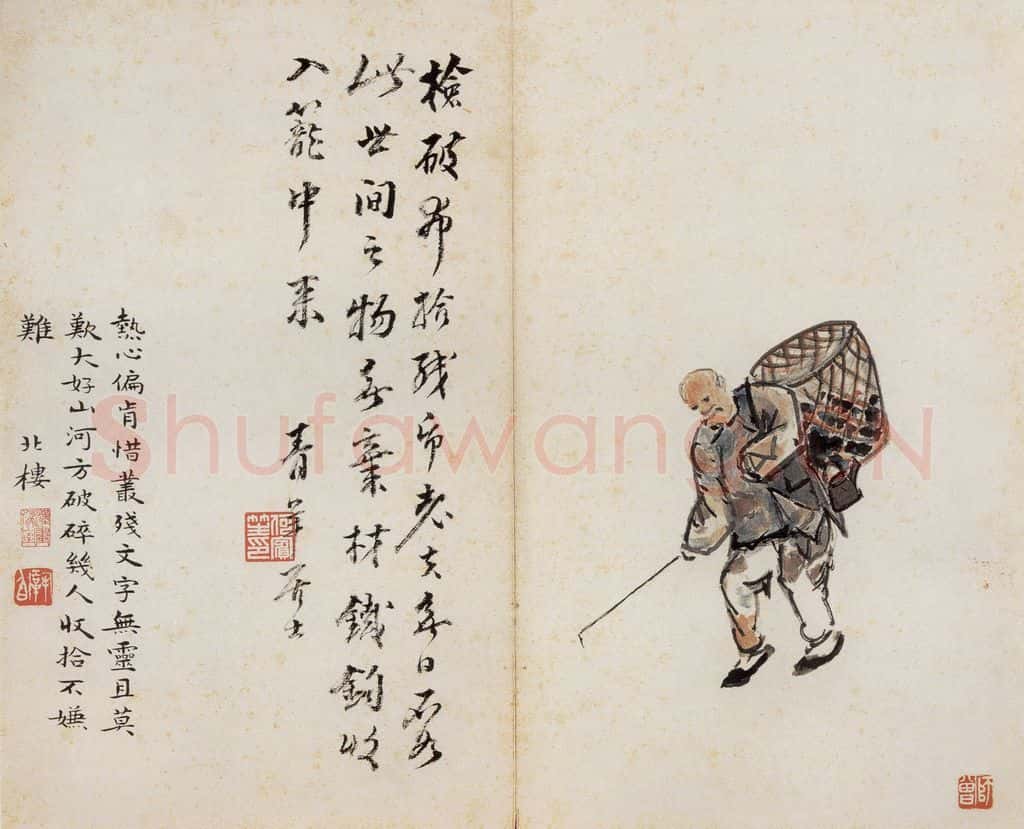 檢破布拾殘帋老夫無日不如
此世間之物無棄材鐵鈎收
入籠中来 青羊居士
熱心偏肯惜叢殘文字無靈且莫
歎大好山河方破碎幾人收拾不嫌
難 北樓
師曾
ShufawangCN